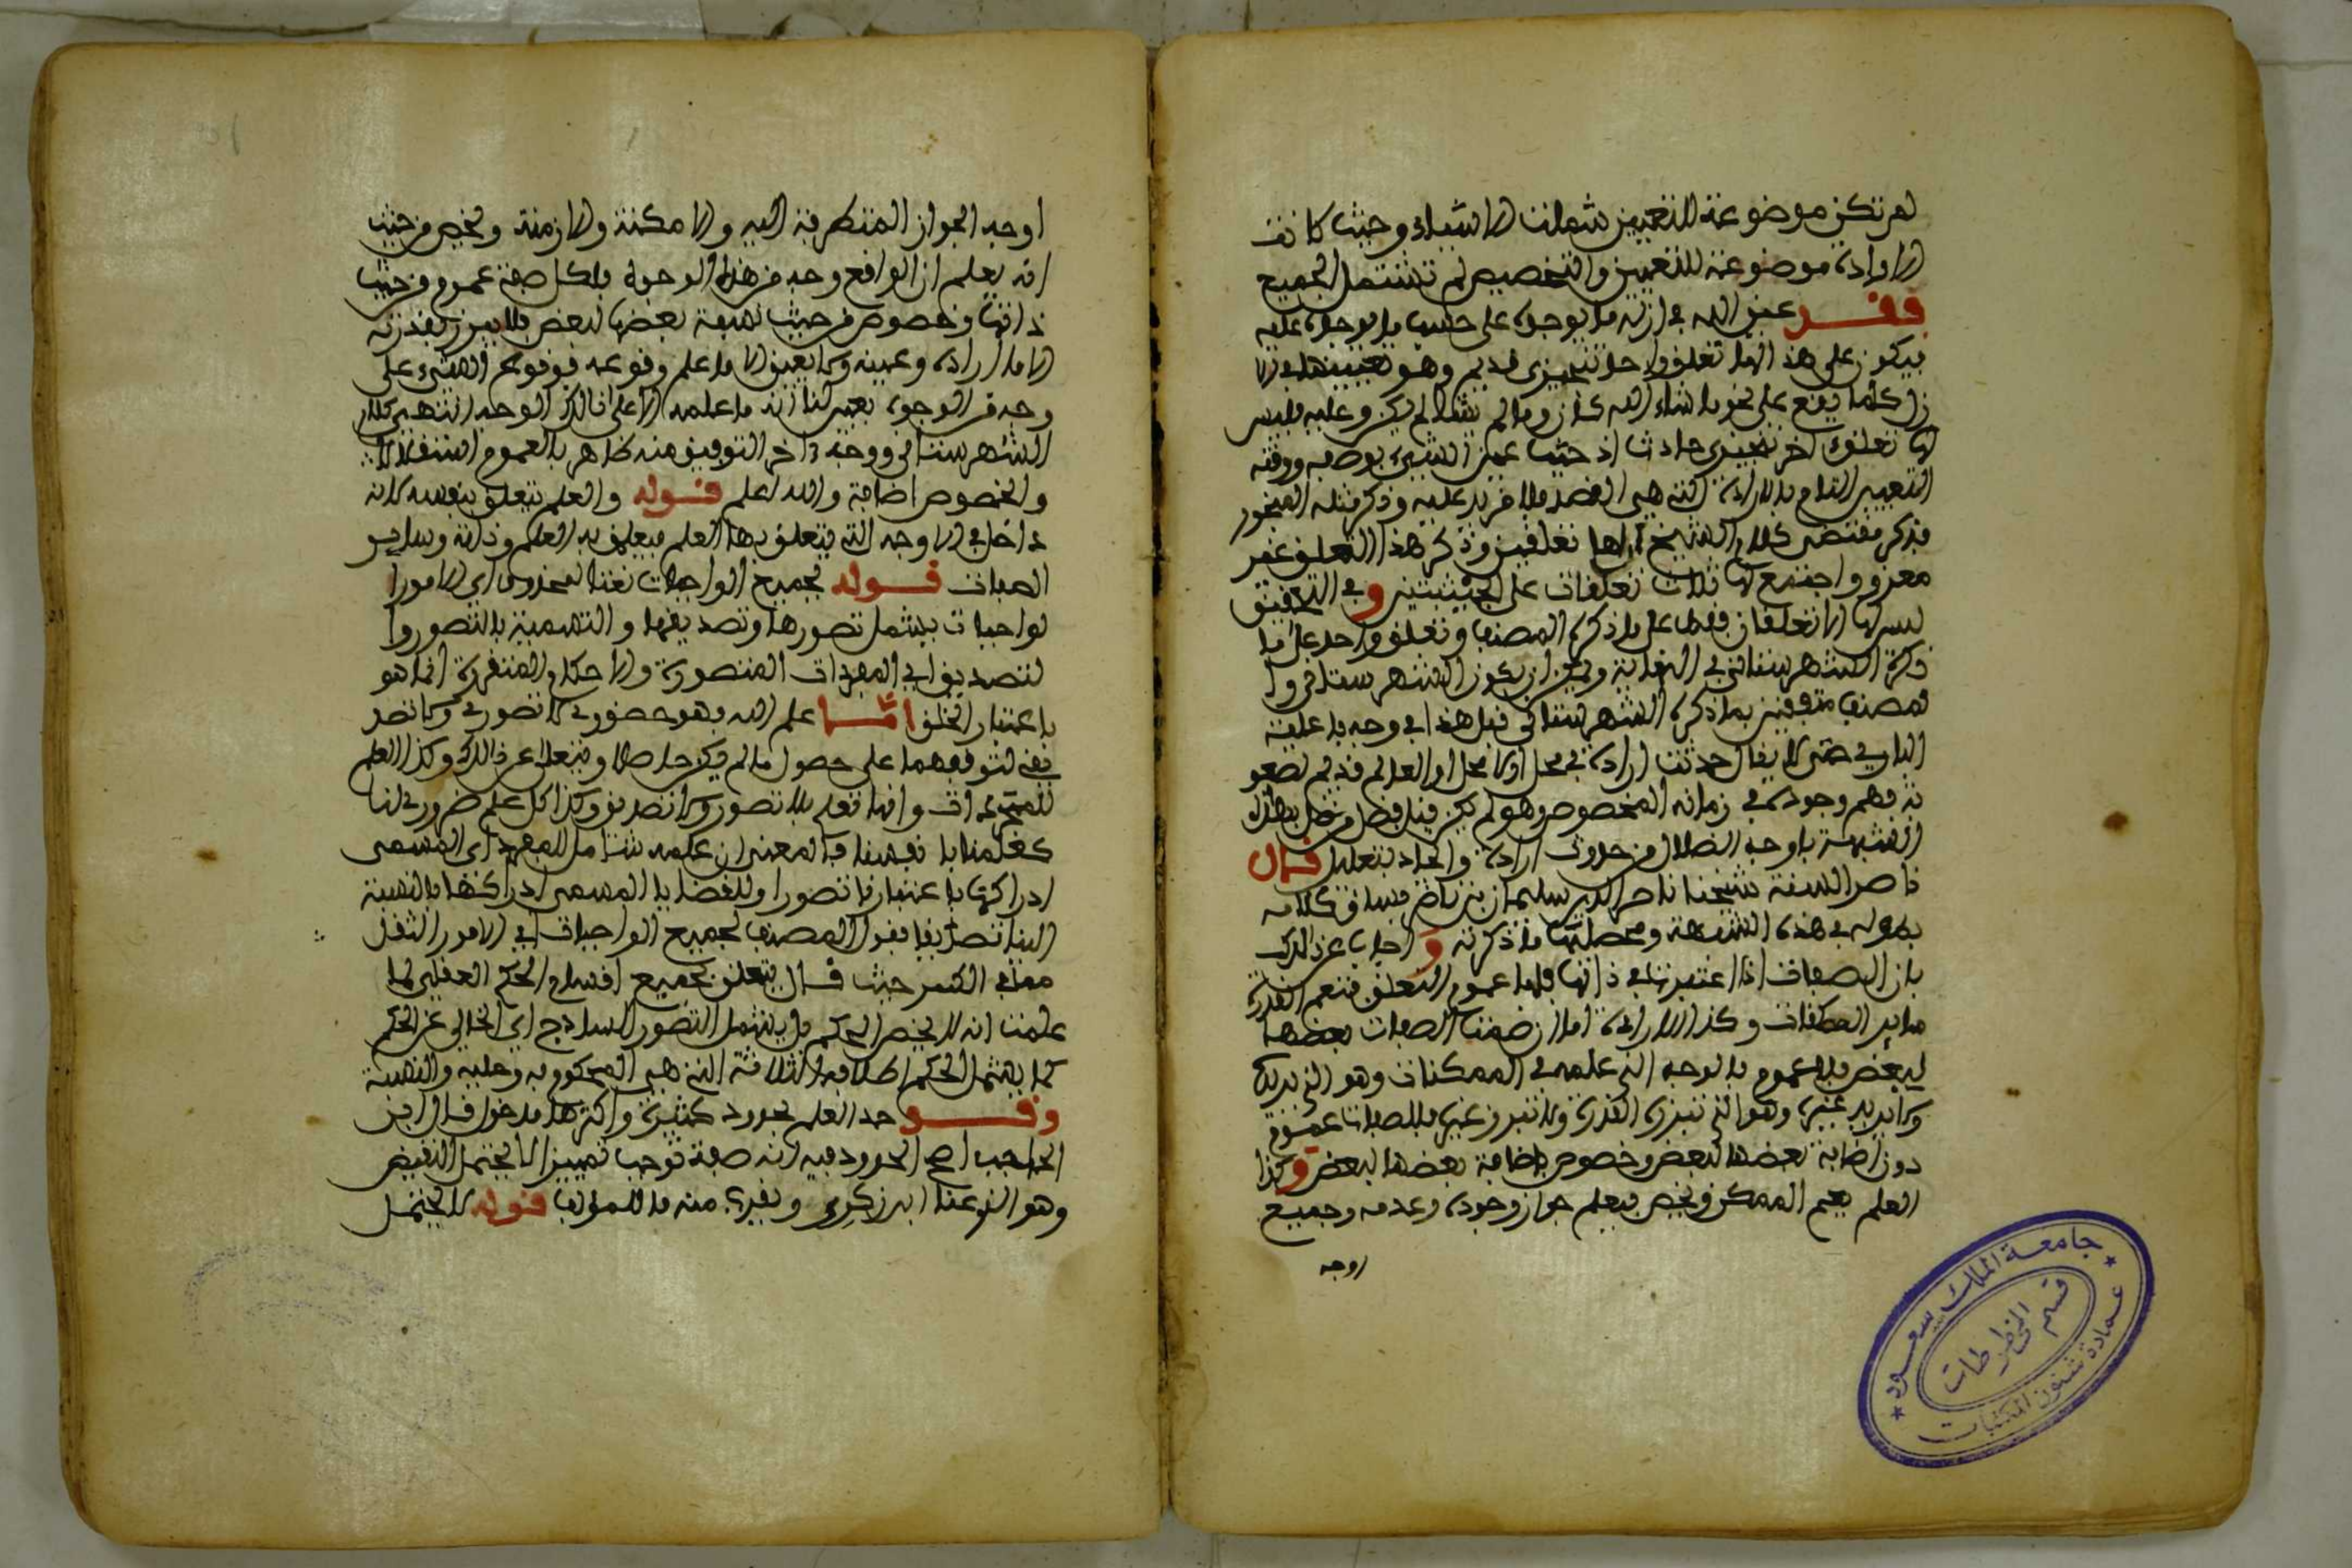 لم تكن موضوعة للتعيين شملت الاشياء وحيث كانت
الارادة موضوعة للتعيين والتخصيص لم تشتمل الجميع
فقد عين الله في ازله ما يوجده على حسب ما يوجده عليه
فيكون على هذا لها تعلق واحد تنجيزي قديم وهو تعيينها في الا
زل كلما يقع على نحو ما شاء الله كان وما لم يشا لم يكن وعليه فليس
لها تعلق اخر تنجيزي حادث اذ حيث عين الشيء بوصفه ووقته
التعيين التام بالارادة التي هي القصد فلا مزيد عليه وذكر مثله المنجور
فذكر مقتضى كلام الشيخ ان لها تعلقين وذكر هذا التعلق غير
معزو واجتمع لها ثلاث تعلقات على الحيثيتين وفي التحقيق
ليس لها الا تعلقان فقط على ما ذكره المصنف وتعلق واحد على ما
ذكره الشهرستاني في النهاية ويمكن ان يكون الشهرستاني وا
لمصنف متفقين بما ذكره الشهرستاني قبل هذا في وجه فاعلية
الباري حتى لا يقال حدثت ارادة في محل او لا محل او العالم قديم لصعو
بة فهم وجوده في زمانه المخصوص وهو لم يكن قبل فضل من ضل بهذه
الشبهة باوجه الضلال من حدوث ارادة والحاد بتعليل قال
ناصر السنة شيخنا ناصر الدين سليمان بن ناصر فساق كلامه
بطوله في هذه الشبهة ومحصلتها ما ذكرته و اجاب عن ذلك
بان الصفات اذا اعتبرتها في ذاتها فلها عموم التعلق فتعم القدرة
سائر الممكنات وكذا الارادة اما ان ضمت الصفات بعضها
لبعض فلا عموم فالوجه الذي علمه في الممكنات وهو الذي يريد
ولا يريد غيره وهو الذي تبرزه القدرة ولا تبرز غيره فللصفات عموم
دون اضافة بعضها لبعض وخصوص باضافة بعضها لبعض وكذا
العلم يعم الممكن ويخص فيعلم جواز وجوده وعدمه وجميع
اوجه
اوجه الجواز المتطرقة اليه والامكنة والازمنة ويخص من حيث
انه يعلم ان الواقع وجه من هذه الوجوه فلكل صفة عموم من حيث
ذاتها وخصوص من حيث نسبة بعضها لبعض فلا يبرز بقدرته
الا ما اراده وعينه ولا يعين الا ما علم وقوعه فوقوع الشيء على
وجه من الوجوه يعين لنا انه ما علمه الا على ذلك الوجه انتهى كلام
الشهرستاني ووجه اخذ التوفيق منه ظاهر بالعموم استقلالا
والخصوص اضافة والله اعلم قوله والعلم يتعلق بنفسه لانه
داخل في الاوجه التي يتعلق بها العلم فيعلم به العلم وذاته وساير
الصفات قوله بجميع الواجبات نعتا لمحذوف اي الامور ا
لواجبات فيشمل تصورها وتصديقها والتسمية بالتصور وا
لتصديق في المفردات المتصورة والاحكام المتقررة انما هو
باعتبار الخلق اما علم الله فهو حضوري لا تصوري ولا تصد
يقي لتوقفهما على حصول ما لم يكن حاصلا ويتعالى عن ذلك وكذا العلم
وانها تعلم بلا تصور ولا تصديق وكذا كل علم ضروري لنا
كعلمنا بانفسنا فالمعنى ان علمه شامل للمفرد اي المسمى
ادراكها باعتبارنا تصورا وللقضايا المسمى ادراكها بالنسبة
الينا تصديقا فقول المصنف لجميع الواجبات اي الامور الثقل
معا في الكبر حيث قال يتعلق بجميع اقسام الحكم العقلي لما
علمت انه لا يخص الحكم بل يشمل التصور الساذج اي الخالي عن الحكم
كما يشمل الحكم اطلاقه الثلاثة التي هي المحكوم به وعليه والنسبة
وقد حد العلم بحدود كثيرة واكثرها مدخول قال ابن
الحاجب اصح الحدود فيه انه صفة توجب تمييزا لا يحتمل النقيض
وهو الذي عند ابن زكري ويقرب منه ما للمؤلف قوله لا يحتمل
جامعة الملك سعود
قسم المخطوطات
عمادة شئون المكتبات